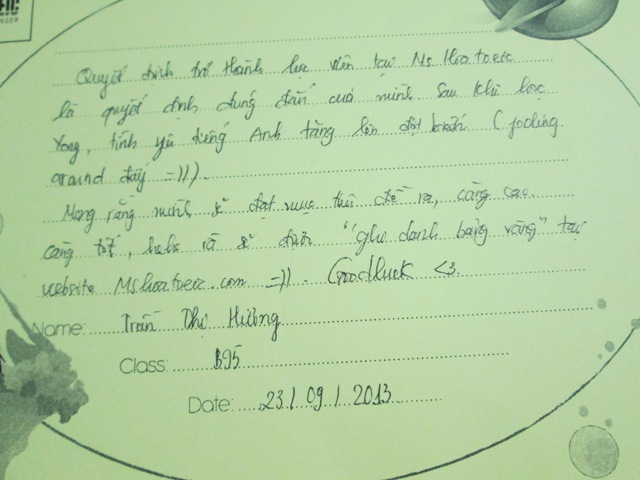 Quyết định trở thành học viên tại Ms Hoa toeic
là quyết định đúng đắn của mình. Sau khi học
xong, tình yêu tiếng Anh tăng lên đột biến (fooling
around đấy =))).
Mong rằng mình sẽ đạt mục tiêu đề ra, càng cao
càng tốt, hehe và sẽ được "ghi danh bảng vàng" tại
website Mshoatoeic.com =)). Goodluck <3.
Name: Trần Thị Hường
Class: B95
Date: 23/09/2013